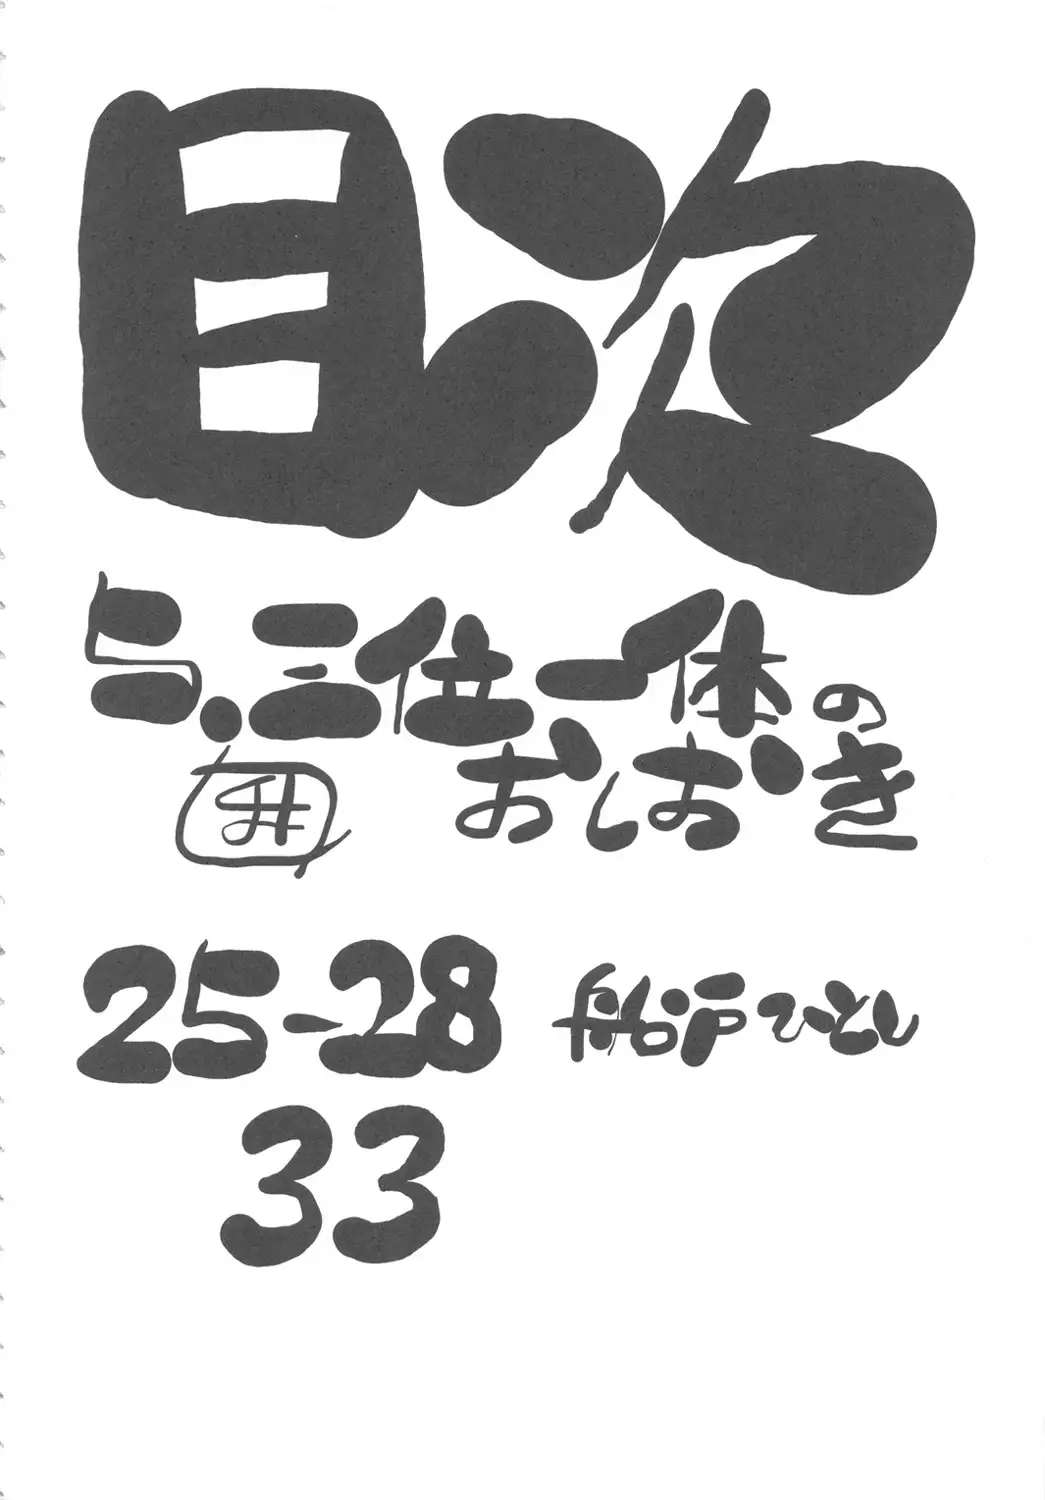 目次
5、三位一体の
おしおき
25-28 船戸ひとし
33